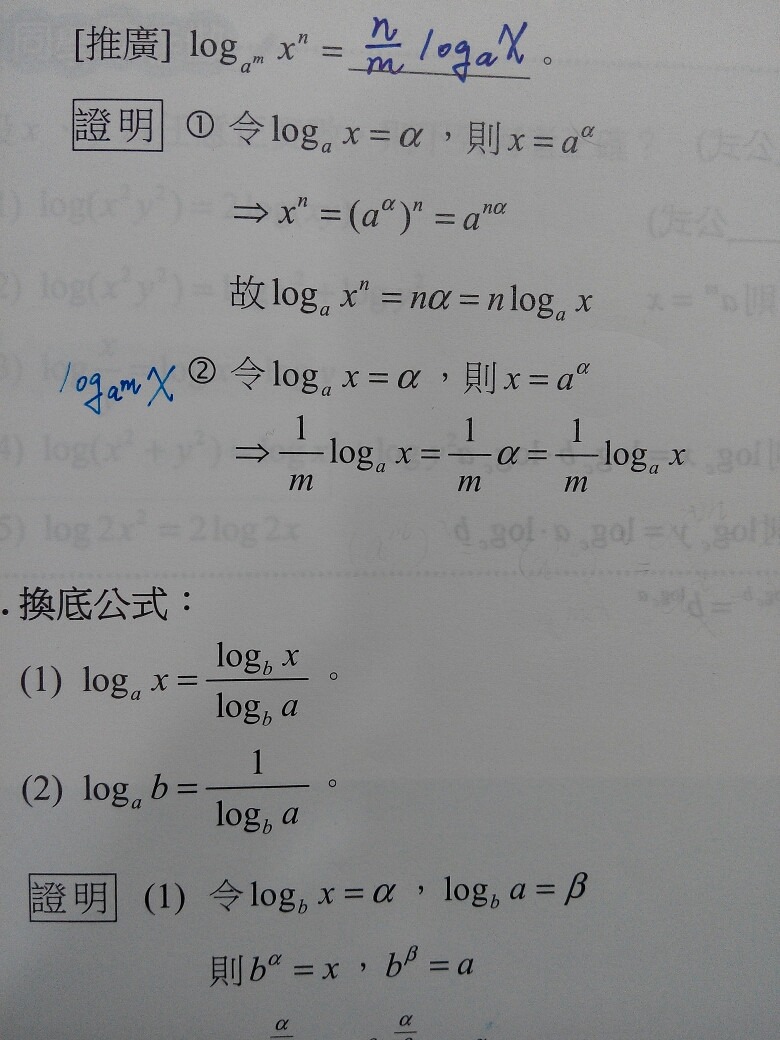 [推廣] log_{a^m} x^n = n/m log_a x。
證明 ① 令 log_a x = α,則 x = a^α
⇒ x^n = (a^α)^n = a^{nα}
故 log_a x^n = nα = n log_a x
log_{a^m} x ② 令 log_a x = α,則 x = a^α
⇒ 1/m log_a x = 1/m α = 1/m log_a x
. 換底公式:
(1) log_a x = log_b x / log_b a。
(2) log_a b = 1 / log_b a。
證明 (1) 令 log_b x = α,log_b a = β
則 b^α = x,b^β = a